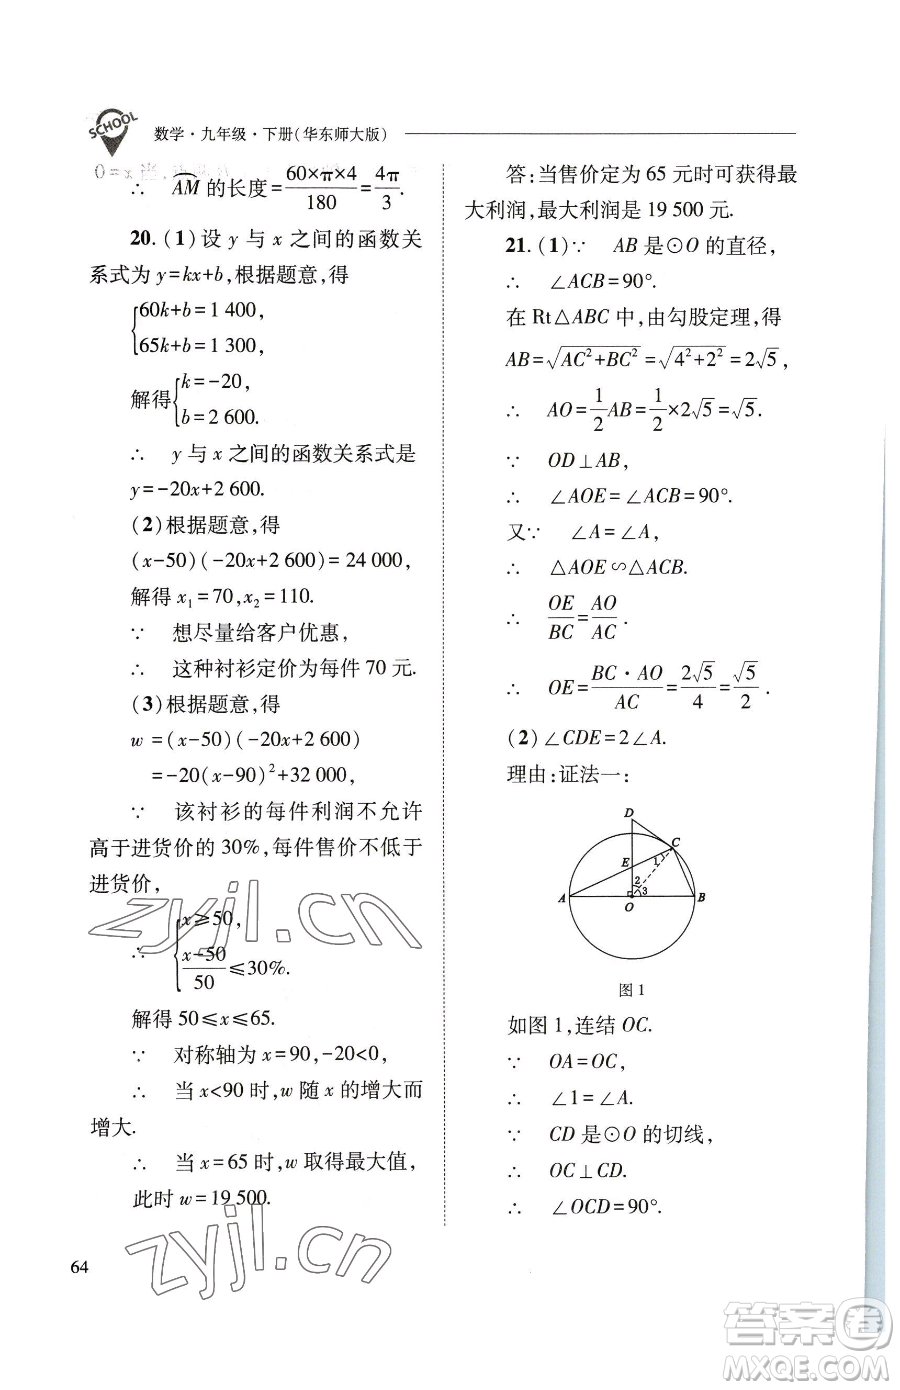 SCHOOL
数学·九年级·下册(华东师大版)
∴ AM的长度=60×π×4/180=4π/3.
20.(1)设 y 与 x 之间的函数关
系式为 y=kx+b,根据题意,得
60k+b=1 400,
65k+b=1 300,
解得{k=-20,
b=2 600.
∴ y 与 x 之间的函数关系式是
y=-20x+2 600.
(2)根据题意,得
(x-50)(-20x+2 600)=24 000,
解得 x₁=70,x₂=110.
∵ 想尽量给客户优惠,
∴ 这种衬衫定价为每件 70 元.
(3)根据题意,得
w=(x-50)(-20x+2 600)
=-20(x-90)²+32 000,
∵ 该衬衫的每件利润不允许
高于进货价的 30%,每件售价不低于
进货价,
∴ {x≥50,
x-50/50≤30%.
解得 50≤x≤65.
∵ 对称轴为 x=90,-20<0,
∴ 当 x<90 时,w 随 x 的增大而
增大.
∴ 当 x=65 时,w 取得最大值,
此时 w=19 500.
64
答:当售价定为 65 元时可获得最
大利润,最大利润是 19 500 元.
21.(1)∵ AB 是⊙O 的直径,
∴ ∠ACB=90°.
在 Rt△ABC 中,由勾股定理,得
AB=√(AC²+BC²)=√(4²+2²)=2√5,
∴ AO=1/2AB=1/2×2√5=√5.
∵ OD⊥AB,
∴ ∠AOE=∠ACB=90°.
又∵ ∠A=∠A,
∴ △AOE∽△ACB.
∴ OE/BC=AO/AC.
∴ OE=BC·AO/AC=2√5/4=√5/2.
(2)∠CDE=2∠A.
理由:证法一:
D
C
E
1
2
3
A
O
B
图 1
如图 1,连结 OC.
∵ OA=OC,
∴ ∠1=∠A.
∵ CD 是⊙O 的切线,
∴ OC⊥CD.
∴ ∠OCD=90°.
zyjl.cn
zyjl.cn
答案卷
MXQE.COM